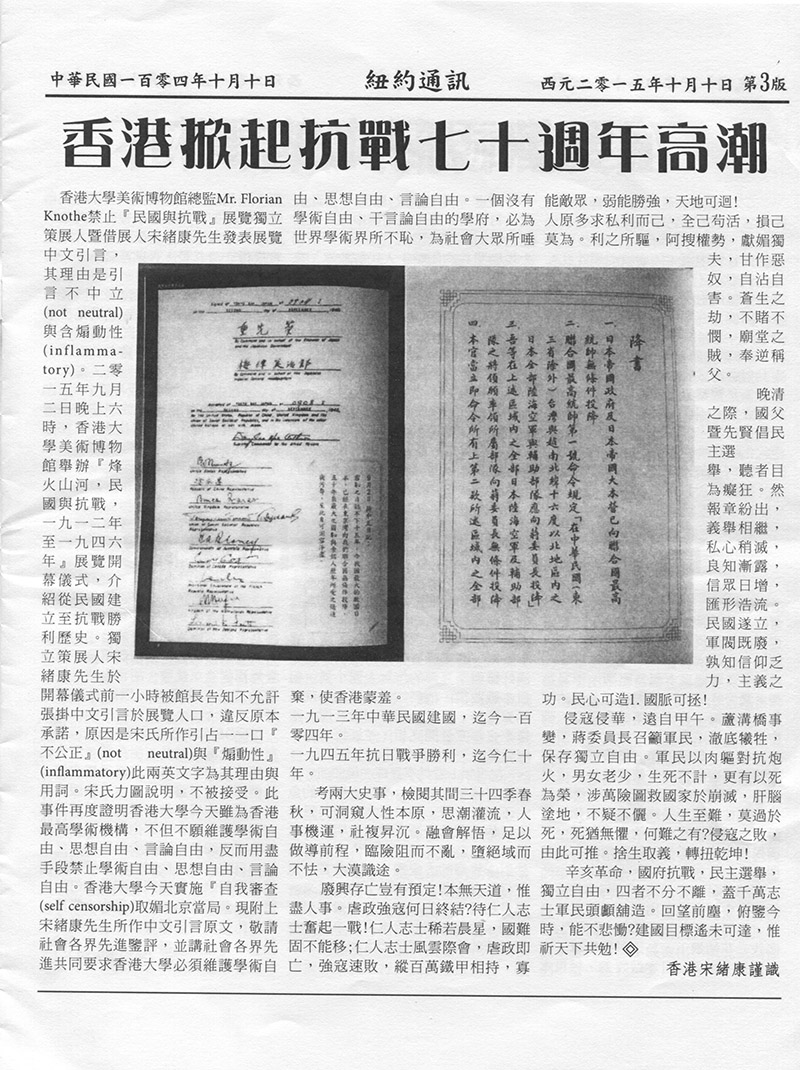 中華民國一百零四年十月十日
紐約通訊
西元二零一五年十月十日 第3版
香港掀起抗戰七十週年高潮
香港大學美術博物館總監Mr. Florian
Knothe禁止『民國與抗戰』展覽獨立
策展人暨借展人宋緒康先生發表展覽
中文引言，
其理由是引
言不中立
(not neutral)
與含煽動性
(inflamma-
tory)。二零
一五年九月
二日晚上六
時，香港大
學美術博物
館舉辦『烽
火山河，民
國與抗戰，
一九一二年
至一九四六
年』展覽開
幕儀式，介
紹從民國建
立至抗戰勝
利歷史。獨
立策展人宋
緒康先生於
開幕儀式前一小時被館長告知不允許
張掛中文引言於展覽人口，違反原本
承諾，原因是宋氏所作引占一一口『
不公正』(not neutral)與『煽動性』
(inflammatory)此兩英文字為其理由與
用詞。宋氏力圖說明，不被接受。此
事件再度證明香港大學今天雖為香港
最高學術機構，不但不願維護學術自
由、思想自由、言論自由，反而用盡
手段禁止學術自由、思想自由、言論
自由。香港大學今天實施『自我審查
(self censorship)取媚北京當局。現附上
宋緒康先生所作中文引言原文，敬請
社會各界先進鑒評，並講社會各界先
進共同要求香港大學必須維護學術自
由、思想自由、言論自由。一個沒有
學術自由、干言論自由的學府，必為
世界學術界所不恥，為社會大眾所唾
重光葵
梅津美治郎
降書
一、日本帝國政府及日本帝國大本營已向聯合國最高
統帥無條件投降
二、聯合國最高統帥第一號命令規定「在中華民國（東
三省除外）台灣與越南北緯十六度以北地區內之
日本全部陸海空軍與輔助部隊應向蔣委員長投降」
三、吾等在上述區域內之全部日本陸海空軍及輔助部
隊之將領願率領所屬部隊向蔣委員長無條件投降
四、本官當立即命令所有上第二款所述區域內之全部
棄，使香港蒙羞。
一九一三年中華民國建國，迄今一百
零四年。
一九四五年抗日戰爭勝利，迄今仁十
年。
考兩大史事，檢閱其間三十四季春
秋，可洞窺人性本原，思潮灌流，人
事機運，社複昇沉。融會解悟，足以
做導前程，臨險阻而不亂，墮絕域而
不怯，大漠識途。
廢興存亡豈有預定!本無天道，惟
盡人事。虐政強寇何日終結?待仁人志
士奮起一戰!仁人志士稀若晨星，國難
固不能移;仁人志士風雲際會，虐政即
亡，強寇速敗，縱百萬鐵甲相持，寡
能敵眾，弱能勝強，天地可迴!
人原多求私利而己，全己苟活，損己
莫為。利之所驅，阿搜權勢，獻媚獨
夫，甘作惡
奴，自沾自
害。蒼生之
劫，不賭不
憫，廟堂之
賊，奉逆稱
父。
晚清
之際，國父
暨先賢倡民
主選
舉，聽者目
為癡狂。然
報章紛出，
義舉相繼，
私心稍滅，
良知漸露，
信眾日增，
匯形浩流。
民國遂立，
軍閥既廢，
孰知信仰乏
力，主義之
功。民心可造1. 國脈可拯!
侵寇侵華，遠自甲午。蘆溝橋事
變，蔣委員長召籲軍民，澈底犧牲，
保存獨立自由。軍民以肉軀對抗炮
火，男女老少，生死不計，更有以死
為榮，涉萬險圖救國家於崩滅，肝腦
塗地，不疑不儸。人生至難，莫過於
死，死猶無懼，何難之有?侵寇之敗，
由此可推。捨生取義，轉扭乾坤!
辛亥革命，國府抗戰，民主選舉，
獨立自由，四者不分不離，蓋千萬志
士軍民頭顱舖造。回望前塵，俯鑒今
時，能不悲慟?建國目標遙未可達，惟
祈天下共勉!
香港宋緒康謹識